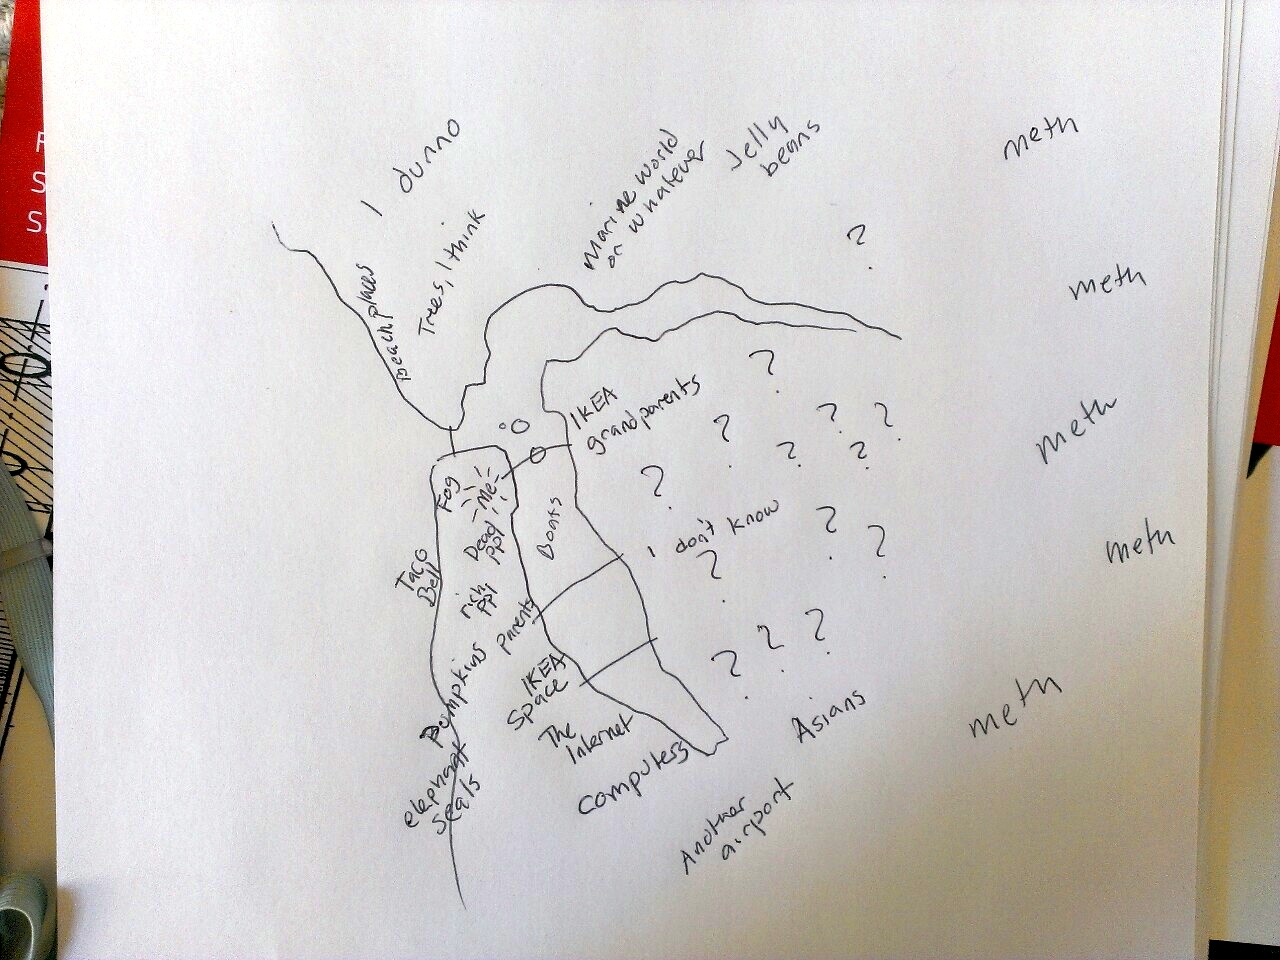 I dunno
Trees, I think
Beach places
Marine World
or whatever
Jelly
beans
meth
?
meth
?
IKEA
grandparents
?
?
?
meth
?
?
?
Fog
Me
Dead
ppl
Boats
I don't know
?
?
?
meth
Taco
Bell
rich
ppl
Parents
Pumpkins
IKEA
Space
The
Internet
?
?
?
meth
elephant
seals
computers
Asians
Another
airport
F
S
S